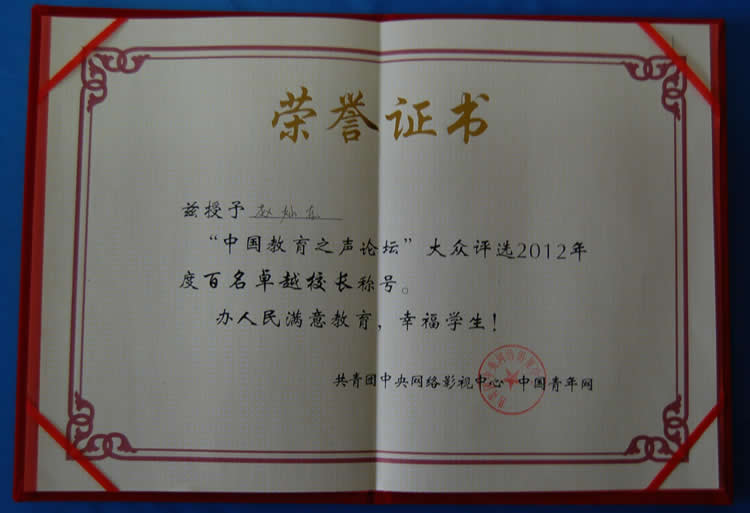 荣誉证书
兹授予 赵灿东
“中国教育之声论坛”大众评选2012年
度百名卓越校长称号。
办人民满意教育，幸福学生！
共青团中央网络影视中心 中国青年网